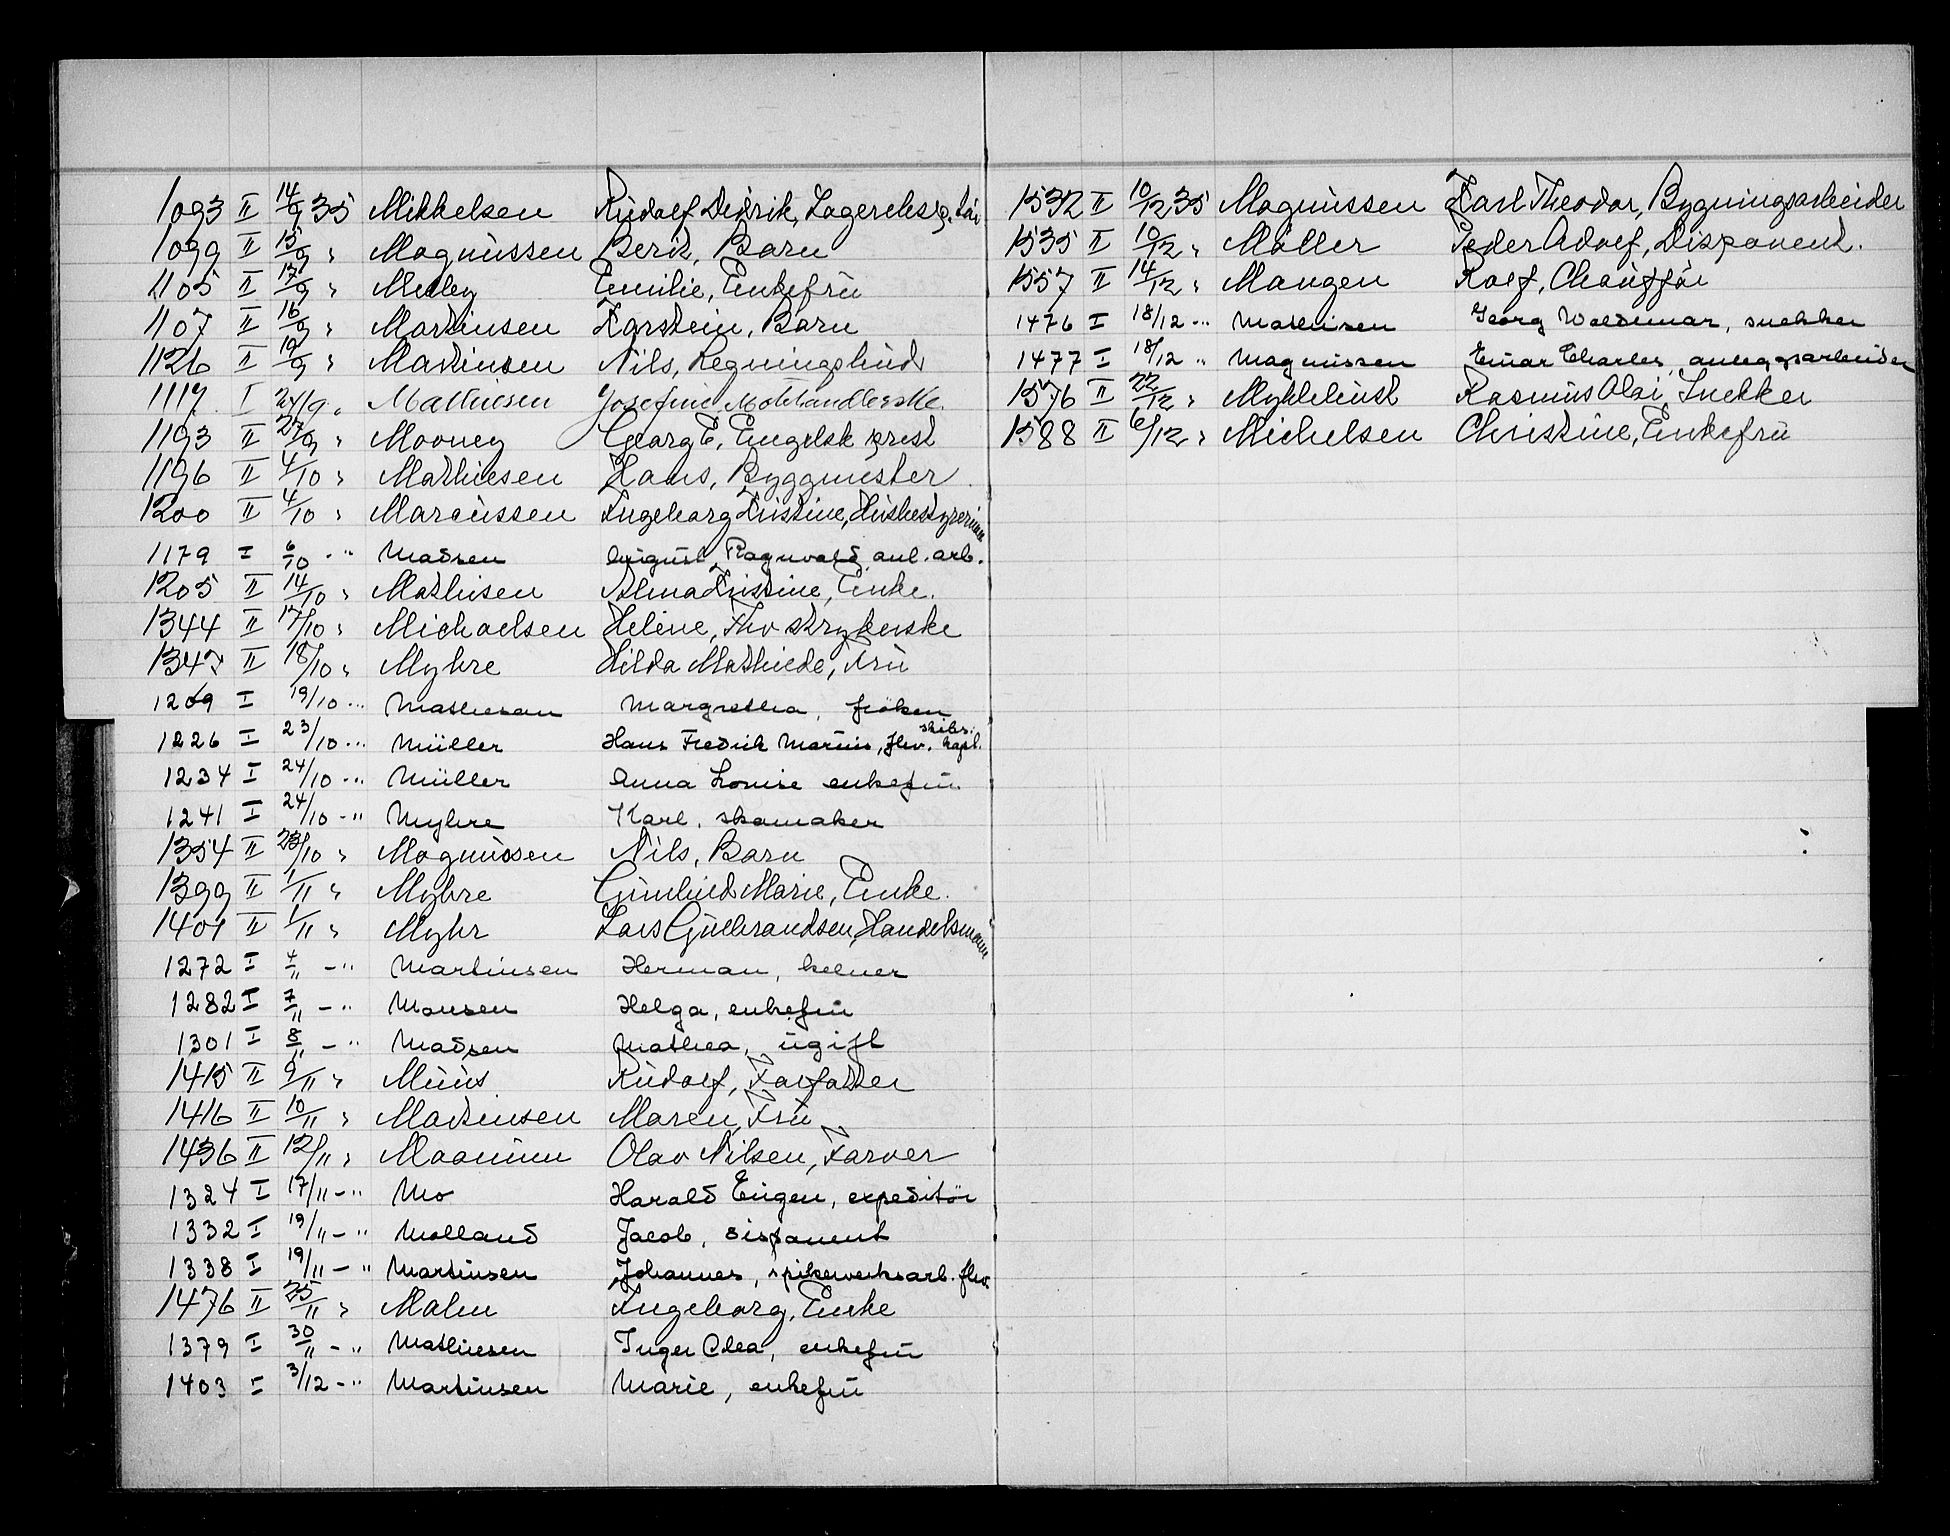 1093 II 14/9 35 Mikkelsen Rudolf Didrik,
1099 II 15/9 " Magnussen Berit, Barn
1105 II 17/9 " Melley Emilie, Enkefru
1107 II 16/9 " Martinsen Karstein, Barn
1126 II 19/9 " Martinsen Nils, Regningsbud
1117 I 24/9 " Mathiesen Josefine
1193 II 27/9 " Mooney Georg E, Engelsk prest
1196 II 4/10 " Mathiesen Hans, Byggmester
1200 II 4/10 " Marcussen Ingeborg Kristine, Husbestyrerinne
1179 I 6/10 - " Madsen August Ragnvald anl. arb.
1205 II 14/10 " Mathisen Alma Kristine, Enke.
1344 II 17/10 " Michaelsen Helene, Fhv strykerske
1347 II 18/10 " Myhre Hilda Mathilde, Fru
1209 I 19/10 - " Mathiesen Margretha, fröken
1226 I 23/10 - " Müller Hans Fredrik Marius, fhv. skibskapt.
1234 I 24/10 - " Müller Anna Lovise enkefru
1241 I 24/10 - " Myhre Karl, skomaker
1354 II 23/10 " Magnussen Nils, Barn
1399 II 1/11 " Myhre Gunhild Marie, Enke.
1401 II 1/11 " Myhr Lars Gulbrandsen, Handelsmann
1272 I 4/11 - " Martinsen Herman, kelner
1282 I 7/11 - " Monsen Helga, enkefru
1301 I 8/11 - " Madsen Mathea, ugift
1415 II 9/11 " Muus Rudolf, Forfatter
1416 II 10/11 " Martinsen Maren, Fru
1436 II 12/11 " Moanum Olav Nilsen, Farver
1324 I 17/11 - " Mo Harald Eugen, expeditör
1332 I 19/11 - " Molland Jacob, disponent
1338 I 19/11 - " Martinsen Johannes, spikerverksarb. fhv.
1476 II 25/11 " Malm Ingeborg, Enke
1379 I 30/11 - " Mathiesen Inger Olea, enkefru
1403 I 3/12 - " Martinsen Marie, enkefru
1532 II 10/12 35 Magnussen Karl Theodor, Bygningsarbeider
1535 II 10/12 " Möller Peder Adolf, Disponent.
1557 II 14/12 " Mangen Rolf, Chauffør
1476 I 18/12 - " Mathisen Georg Waldemar, snekker
1477 I 18/12 " Magnussen Einar Charles, anleggsarbeider
1576 II 22/12 " Myklebust Rasmus Olai, Snekker
1588 II 6/12 " Michelsen Christine, Enkefru